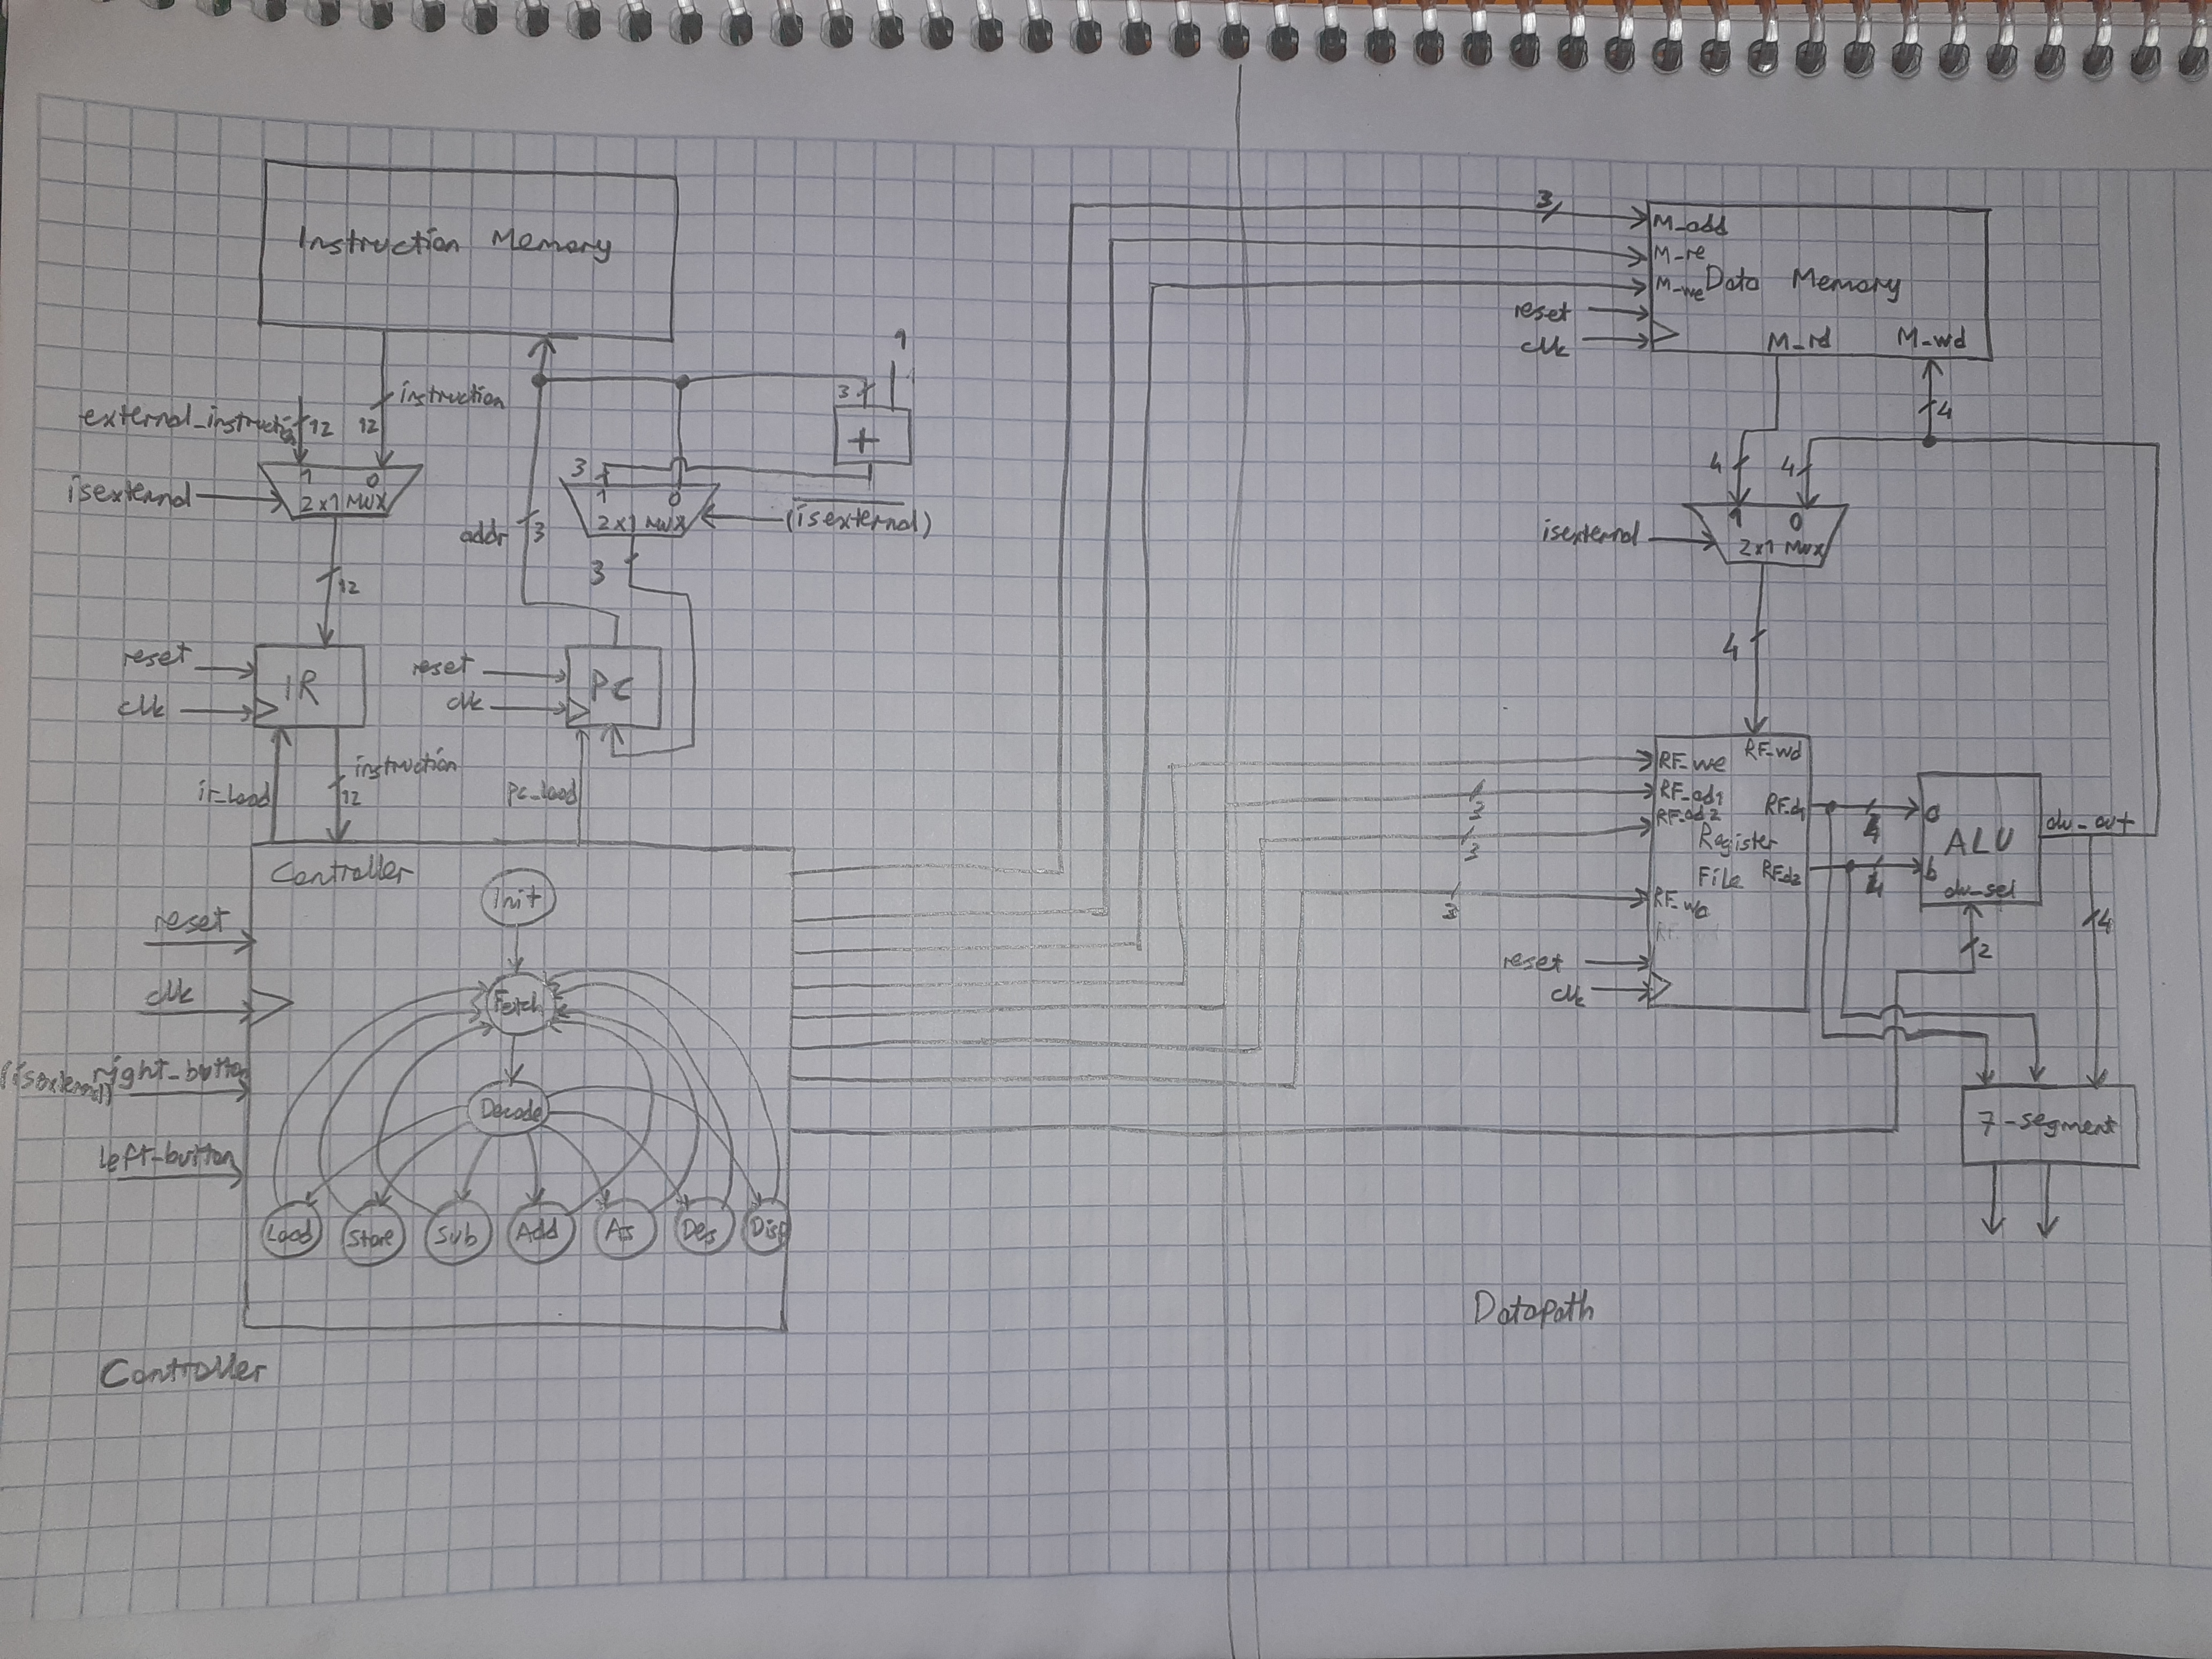 Instruction Memory
external_instruction
12
12
instruction
isexternal
1 0
2x1 MUX
12
reset
clk
IR
ir_load
instruction
12
1
3
+
3
1 0
2x1 MUX
(isexternal)
addr
3
3
reset
clk
PC
pc_load
Controller
reset
clk
(isexternal)
right_button
left-button
Init
Fetch
Decode
Load
Store
Sub
Add
As
Des
Disp
Controller
3
M_add
M_re
M_we
Data Memory
reset
clk
M_rd
M_wd
4
4
4
isexternal
1 0
2x1 MUX
4
RF_we
RF_wd
3
RF_ad1
3
RF_ad2
RF_d1
Register
File
RF_d2
3
RF_wa
reset
clk
4
4
a
ALU
b
alu_sel
alu_out
2
4
7-segment
Datapath